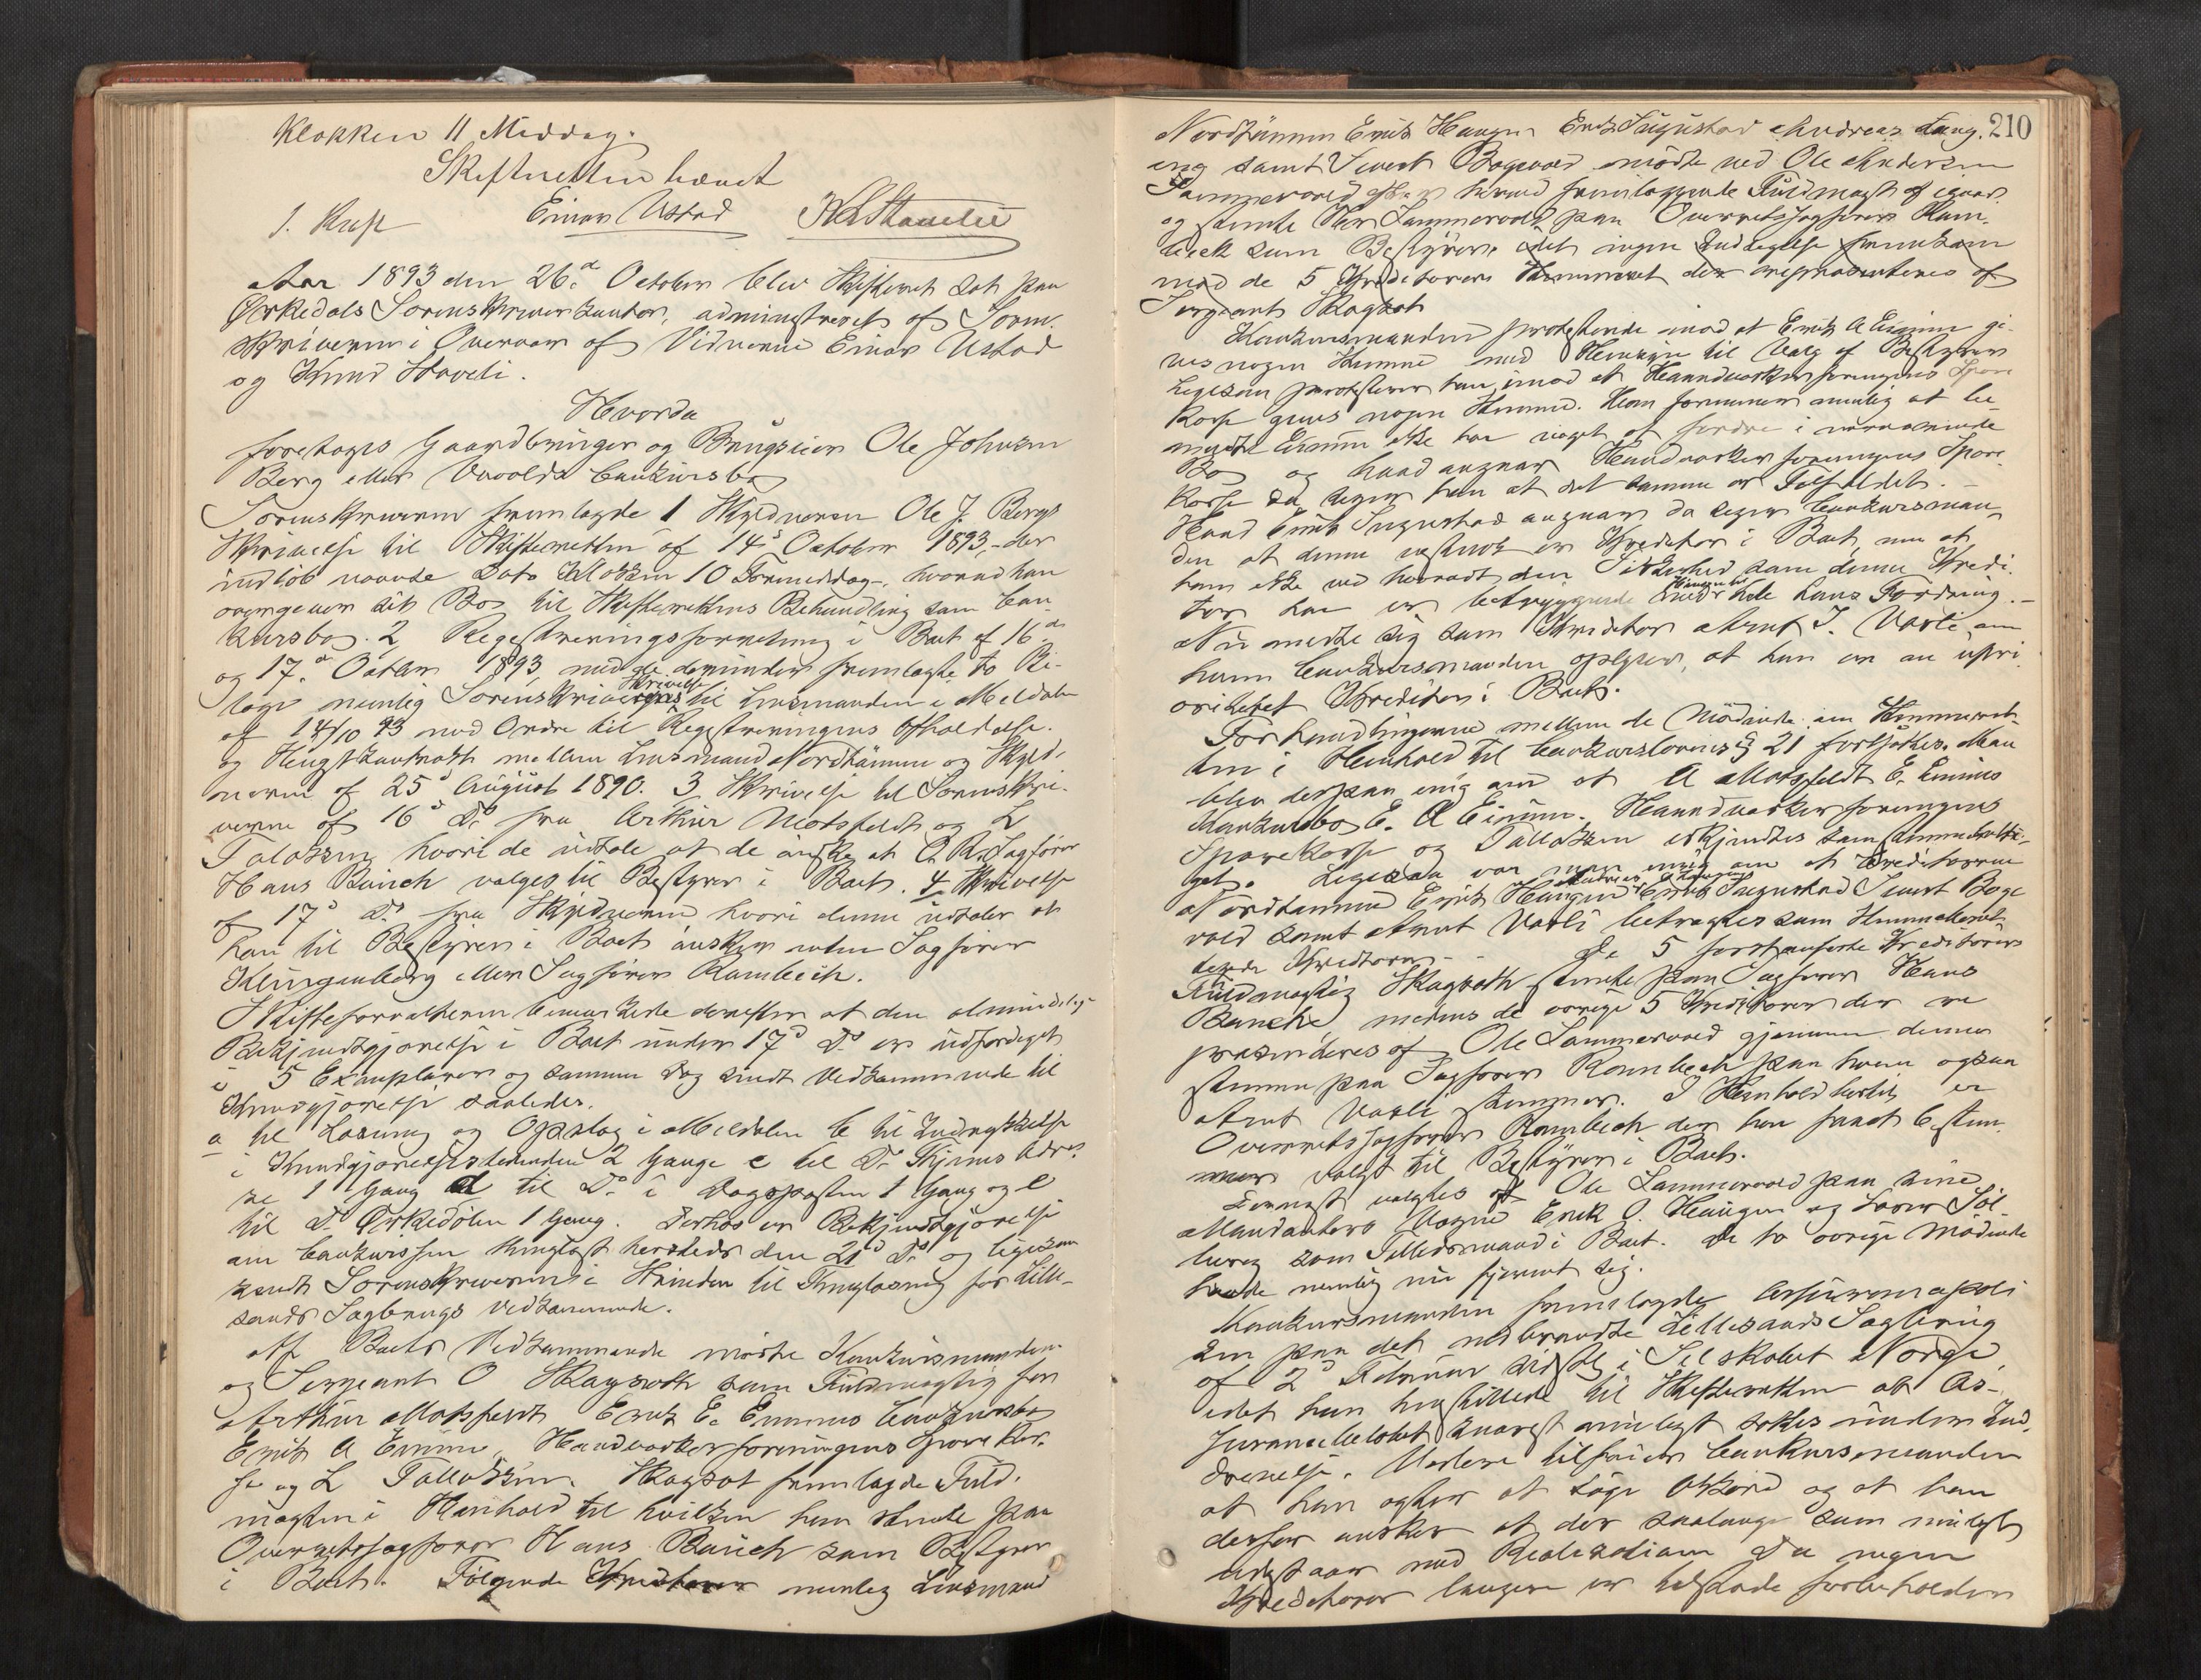 Klokken 11 Middag.
Skifteretten hævet
J. Rusk Einar Ustad K L Haveli
Aar 1893 den 26d October blev Skifteret sat paa
Orkedals Sorenskriverkontor, administreret af Soren
skriveren i Overvær af Vidnerne Einar Ustad
og Knud Haveli.
Hvorda
foretoges Gaardbruger og Brugseier Ole Johnsen
Berg eller Vavolds Concursbo
Sorenskriveren fremlagde 1 Skyldneren Ole J. Bergs
Skrivelse til Skifteretten af 14d October 1893, der
indløb nævnte Dato Klokken 10 Formiddag, hvorved han
overgiver sit Bo til Skifterettens Behandling som Con
kursbo. 2 Registreringsforretning i Boet af 16d
og 17d October 1893 med de derunder fremlagte to Bi-
lage nemlig Sorenskriverens Skrivelse til Lensmanden i Meldalen
af 14/10 93 med Ordre til Registreringens Afholdelse.
og Kontrakt mellem Lensmand Nordhammer og Skyld-
neren af 25d August 1890. 3 Skrivelse til Sorenskri-
veren af 16d Ds fra Arthur Motzfeldt og L
Tallaksen hvori de udtale at de ønske at O. R. Sagfører
Hans Bauck valges til Bestyrer i Boet. 4 Skrivelse
af 17d Ds fra Skyldneren hvori denne udtaler at
han til Bestyrer i Boet ønsker enten Sagfører
Klingenberg eller Sagfører Rambech.
Skifteforvalteren bemærkede derefter at den almindelige
Bekjendtgjørelse i Boet under 17d Ds er udfærdiget
i 5 Exemplarer og samme Dag sendt Vedkommende til
Kundgjørelse saaledes.
a til Læsning og Opslag i Meldalen b til Indrykkelse
i Kundgjørelsestidenden 2 Gange c til Ds i Trhjems Adres
se 1 Gang d til Ds i Dagsposten 1 Gang og e
til Ds Orkedølen 1 Gang. Derhos er Bekjendtgjørelse
om Concursen thinglæst herstedes den 21d Ds og ligesom
sendt Sorenskriveren i Strinden til Thinglæsning for Lille-
sands Sagbrugs Vedkommende.
Af Boets Vedkommende mødte Konkursmanden
og Sergeant O Skagseth som Fuldmægtig for
Arthur Motzfeldt Erik E. Emmes Concursbo
Erik A Emme, Haandværkerforeningens Sparekas-
se og L Tallaksen. Skagset fremlagde Fuld-
magten i Henhold til hvilken han stemte paa
Overretssagfører Hans Bauck som Bestyrer
i Boet. Følgende Kreditorer nemlig Lensmand
210
Nordhammer Erik Haugen Erik Sugustad Andreas Aung.
eng samt Sivert Bogevold mødte ved Ole Andersen
Sammervold efter herved fremlagte Fuldmagt af igaar.
og stemte Hr Sammervold paa Overretssagfører Ram-
bech som Bestyrer. idet ingen Indsigelse fremkom
mod de 5 Kreditorers Stemmeret der repræsenteres af
Sergeant Skagset
Konkursmanden protesterede imod at Erik A Emme gi-
ves nogen Stemme med Hensyn til Valg af Bestyrer
Ligesom protesterer han imod at Haandværkerforeningens Spare
kasse gives nogen Stemme. Han formener nemlig at be-
meldte Emme ikke har noget at fordre i nærværende
Bo og hvad angaar Haandværkerforeningens Spare
kasse da siger han at det samme er Tilfældet.
Hvad Erik Sugustad angaar da siger Concursman
den at denne vistnok er Kreditor i Boet, men at
han ikke ved hvorvidt den Sikkerhed som denne Kredi-
tor har er betryggende for hele hans Fordring.
Nu meldte sig som Kreditor Arnt J. Vaali om
hvem Concursmanden oplyser, at han er en upri
oriteret Kreditor i Boet.
Forhandlingerne mellem de Mødende om Stemmeret-
ten i Henhold til Concurslovens § 21 fortsattes. Man
blev derpaa enig om at A Motzfeldt E. Emmes
Konkursbo E. A Emme. Haandværkerforeningens
Sparekasse og Tallaksen erkjendtes som stemmeberetti-
get. Ligesaa var man enig om at Kreditorerne
Nordhammer Erik Haugen Andreas Erik Sugustad Sivert Boge
vold samt Arnt Vaali betragtes som stemmeberet-
tigede Kreditorer. De 5 først anførte Kreditorers
Fuldmægtig Skagseth stemte paa Sagfører Hans
Bauck, medens de øvrige 5 Kreditorer der re
præsenteres af Ole Sammervold gjennem denne
stemme paa Sagfører Rambech paa hvem ogsaa
Arnt Vaali stemmer. I Henhold hertil er
Overretssagfører Rambech der har faaet 6 stem-
mer valgt til Bestyrer i Boet.
Dernæst valgtes af Ole Sammervold paa sine
Mandanters Vegne Erik O. Haugen og Lars Sol-
berg som Tillidsmænd i Boet. De to øvrige Mødende
havde nemlig nu fjernet sig.
Konkursmanden fremlagde Assurancepoli
cen paa det nedbrændte Lillesands Sagbrug
af 2d Februar sidstl i Selskabet Norge
idet han henstillede til Skifteretten at As-
surancebeløbet snarest muligst søkes under Ind-
drivelse. Videre tilføier Concursmanden
at han agter at søge Akkord og at han
derfor ønsker at der saalænge som muligt
udstaar med Realisation. Da ingen
Kreditorer længere er tilstede forbeholder